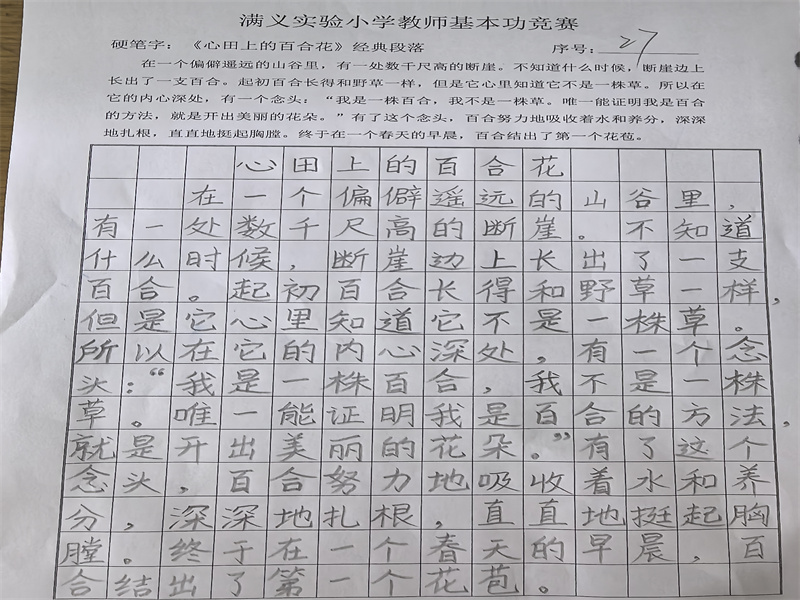 满义实验小学教师基本功竞赛
硬笔字：《心田上的百合花》经典段落 序号：27
在一个偏僻遥远的山谷里，有一处数千尺高的断崖。不知道什么时候，断崖边上
长出了一支百合。起初百合长得和野草一样，但是它心里知道它不是一株草。所以在
它的内心深处，有一个念头：“我是一株百合，我不是一株草。唯一能证明我是百合
的方法，就是开出美丽的花朵。”有了这个念头，百合努力地吸收着水和养分，深深
地扎根，直直地挺起胸膛。终于在一个春天的早晨，百合结出了第一个花苞。
心田上的百合花
在一个偏僻遥远的山谷里，
有一处数千尺高的断崖。不知道
什么时候，断崖边上长出了一支
百合。起初百合长得和野草一样，
但是它心里知道它不是一株草。
所以在它的内心深处，有一个念
头：“我是一株百合，我不是一株
草。唯一能证明我是百合的方法，
就是开出美丽的花朵。”有了这个
念头，百合努力地吸收着水和养
分，深深地扎根，直直地挺起胸
膛。终于在一个春天的早晨，百
合结出了第一个花苞。